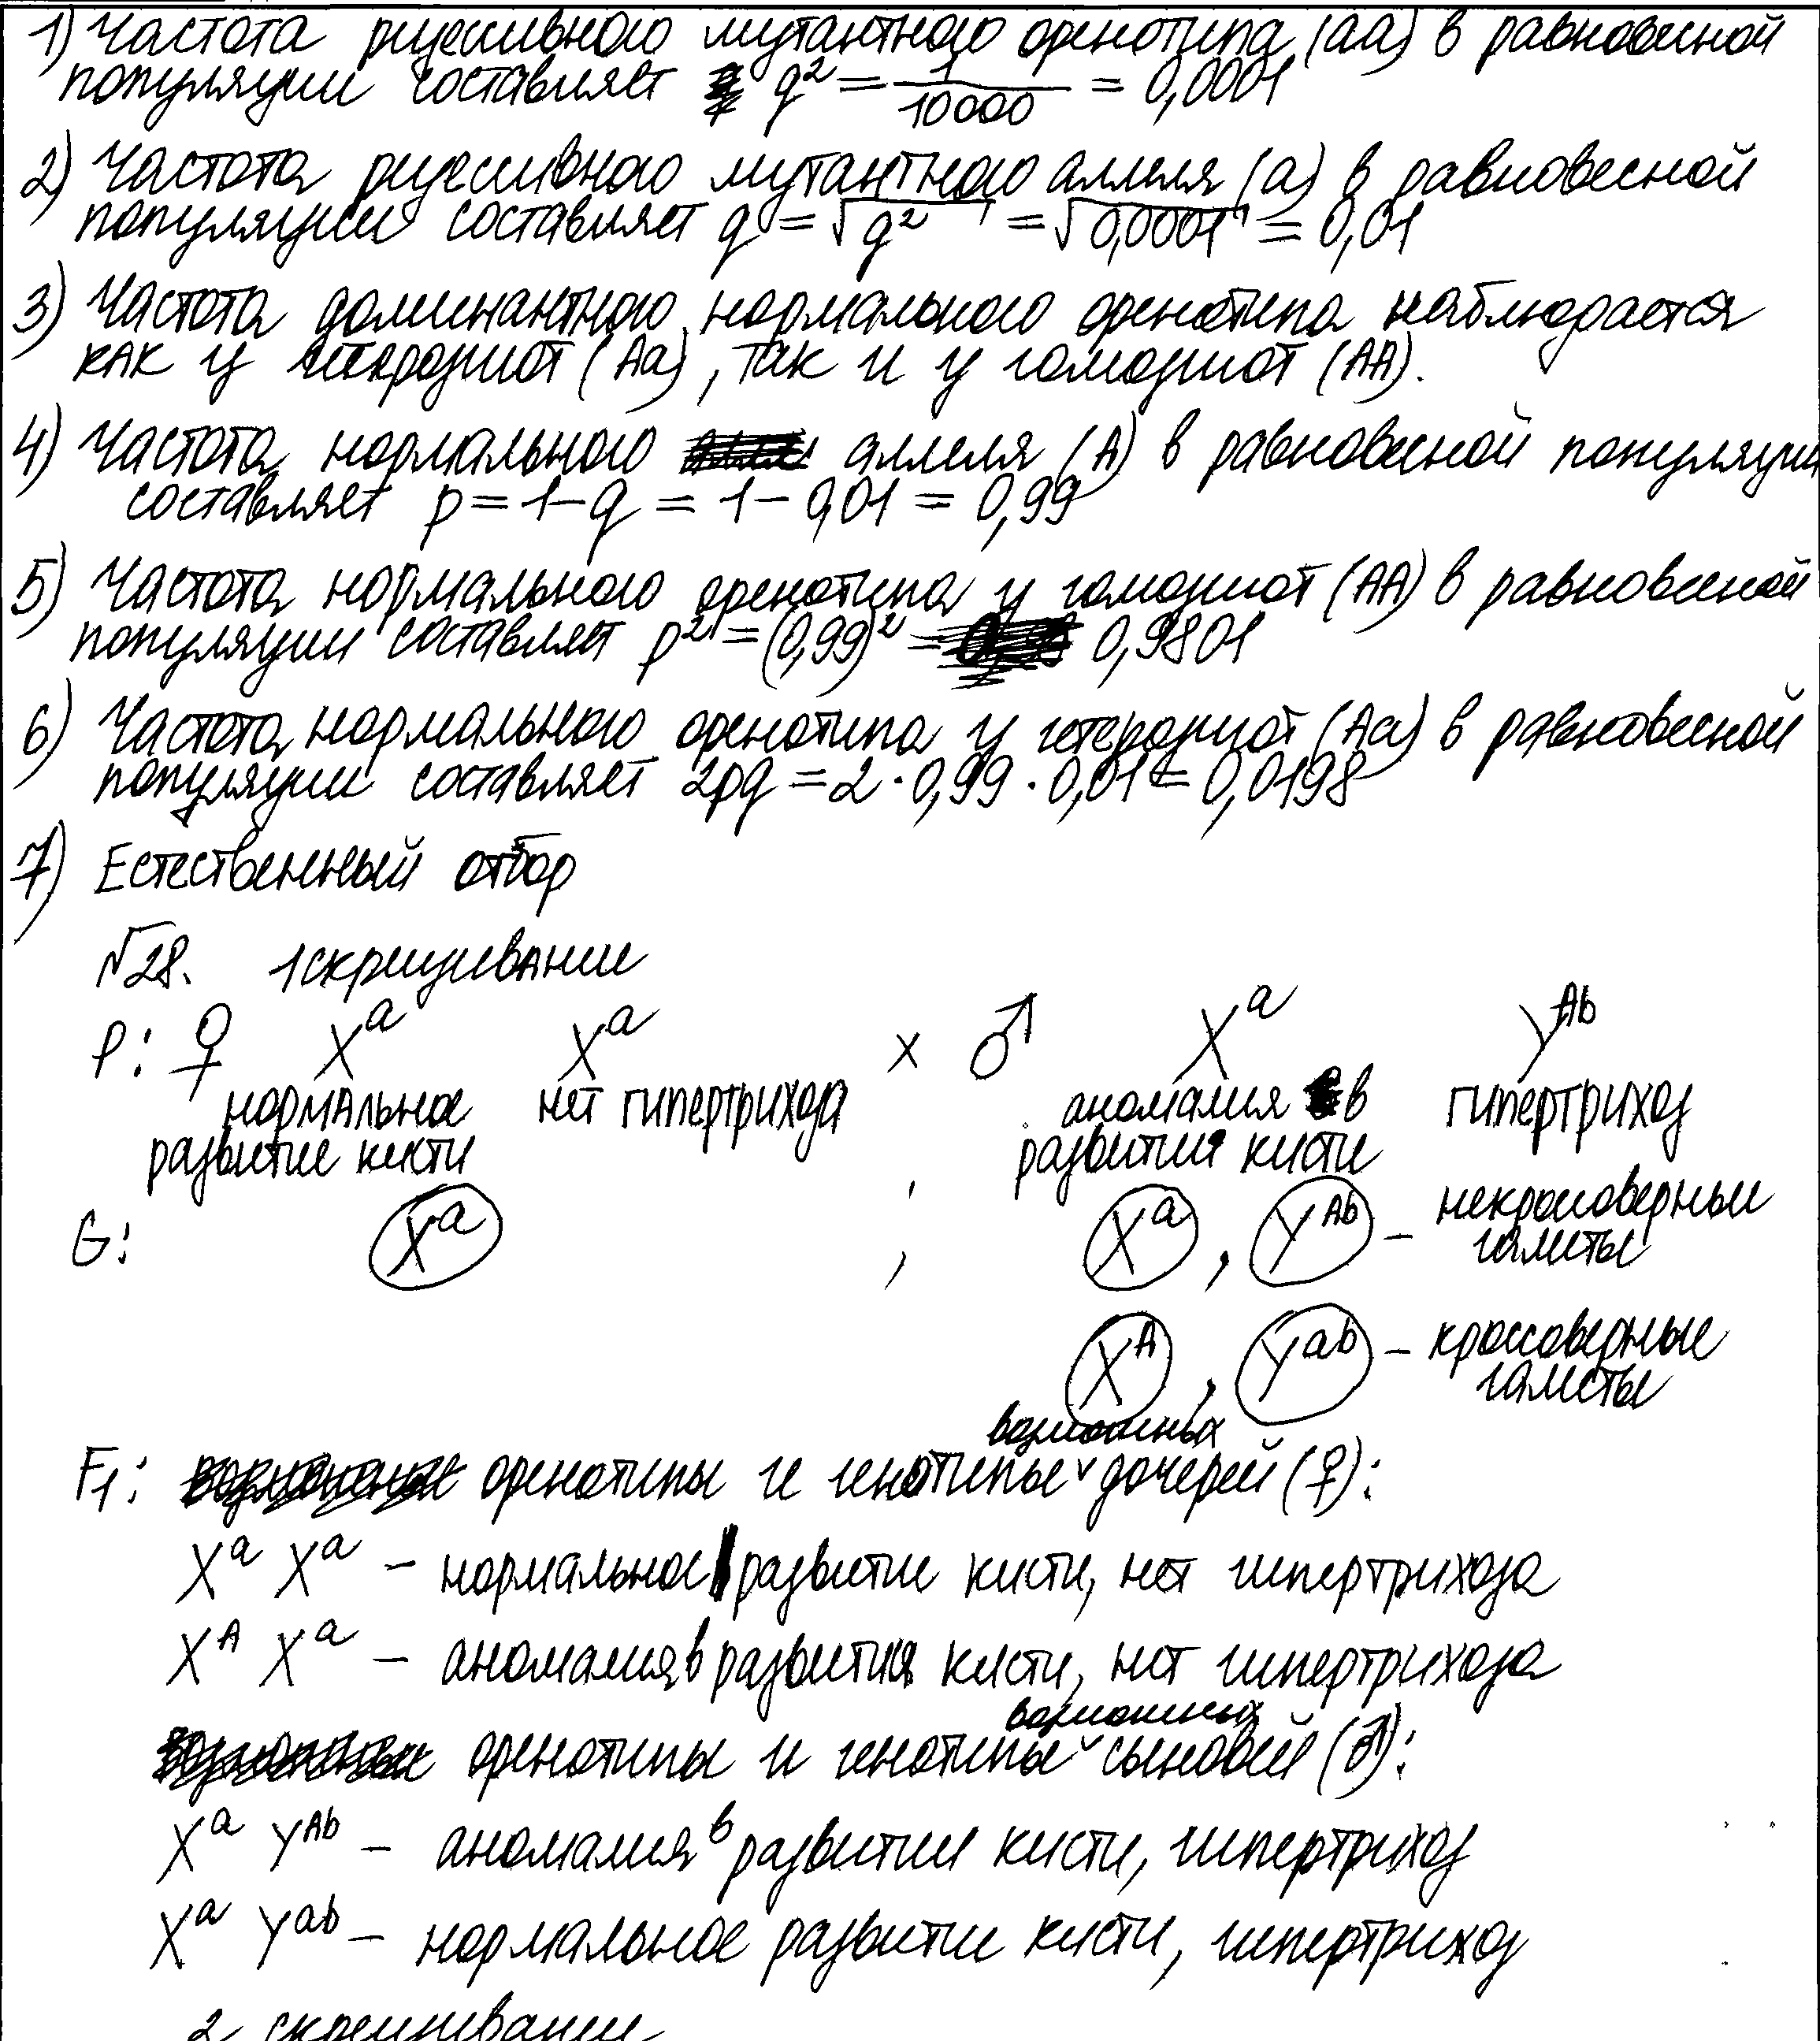 1) Частота рецессивного мутантного фенотипа (аа) в равновесной
популяции составляет q² = 1/10000 = 0,0001
2) Частота рецессивного мутантного аллеля (а) в равновесной
популяции составляет q = √q² = √0,0001 = 0,01
3) Частота доминантного нормального фенотипа наблюдается
как у гетерозигот (Аа), так и у гомозигот (АА).
4) Частота нормального аллеля (А) в равновесной популяции
составляет p = 1 - q = 1 - 0,01 = 0,99
5) Частота нормального фенотипа у гомозигот (АА) в равновесной
популяции составляет p² = (0,99)² = 0,9801
6) Частота нормального фенотипа у гетерозигот (Аа) в равновесной
популяции составляет 2pq = 2 · 0,99 · 0,01 = 0,0198
7) Естественный отбор
№28. 1 скрещивание
P: ♀ Xᵃ Xᵃ x ♂ Xᵃ Yᴬᵇ
нормальное нет гипертрихоза аномалия в гипертрихоз
развитие кисти развитии кисти
G: Xᵃ , Xᵃ , Yᴬᵇ – некроссоверные
гаметы
Xᴬ , Yᵃᵇ – кроссоверные
гаметы
возможных
F1: фенотипы и генотипы ˅ дочерей (♀):
Xᵃ Xᵃ – нормальное развитие кисти, нет гипертрихоза
Xᴬ Xᵃ – аномалия в развитии кисти, нет гипертрихоза
возможных
фенотипы и генотипы ˅ сыновей (♂):
Xᵃ Yᴬᵇ – аномалия в развитии кисти, гипертрихоз
Xᵃ Yᵃᵇ – нормальное развитие кисти, гипертрихоз
2 скрещивание